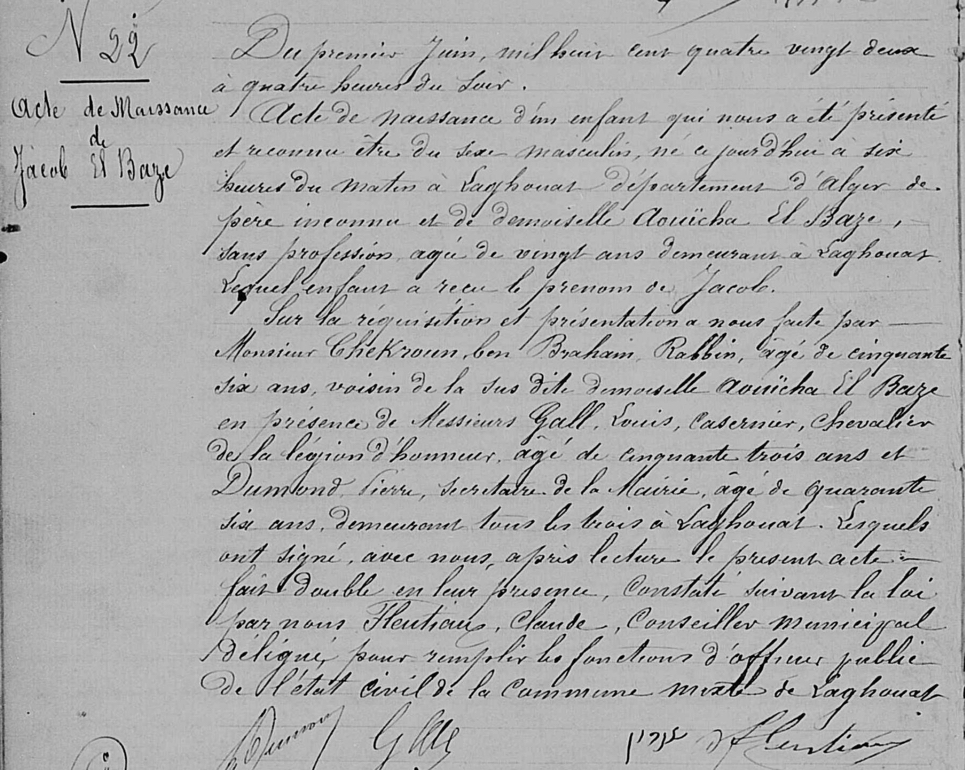 N 22
Acte de Naissance
de
Jacob El Baze
Du premier Juin, mil huit cent quatre vingt deux
à quatre heures du soir.
Acte de naissance d'un enfant qui nous a été présenté
et reconnu être du sexe masculin, né ce jourd'hui à six
heures du matin à Laghouat département d'Alger de
père inconnu et de demoiselle Aouïcha El Baze,
sans profession, agée de vingt ans demeurant à Laghouat.
Lequel enfant a recu le prenom de Jacob.
Sur la réquisition et présentation a nous faite par
Monsieur Chekroun, ben Braham, Rabbin, âgé de cinquante
six ans, voisin de la sus dite demoiselle Aouïcha El Baze
en présence de Messieurs Gall, Louis, casernier, chevalier
de la légion d'honneur, âgé de cinquante trois ans et
Dumond, Pierre, secretaire de la Mairie, âgé de quarante
six ans, demeurant tous les trois à Laghouat. Lesquels
ont signé, avec nous, après lecture le present acte
fait double en leur presence, constaté suivant la loi
par nous Fleutiaux, Claude, Conseiller municipal
délégué pour remplir les fonctions d'officier public
de l'état civil de la Commune mixte de Laghouat
Dumond Gall Fleutiaux